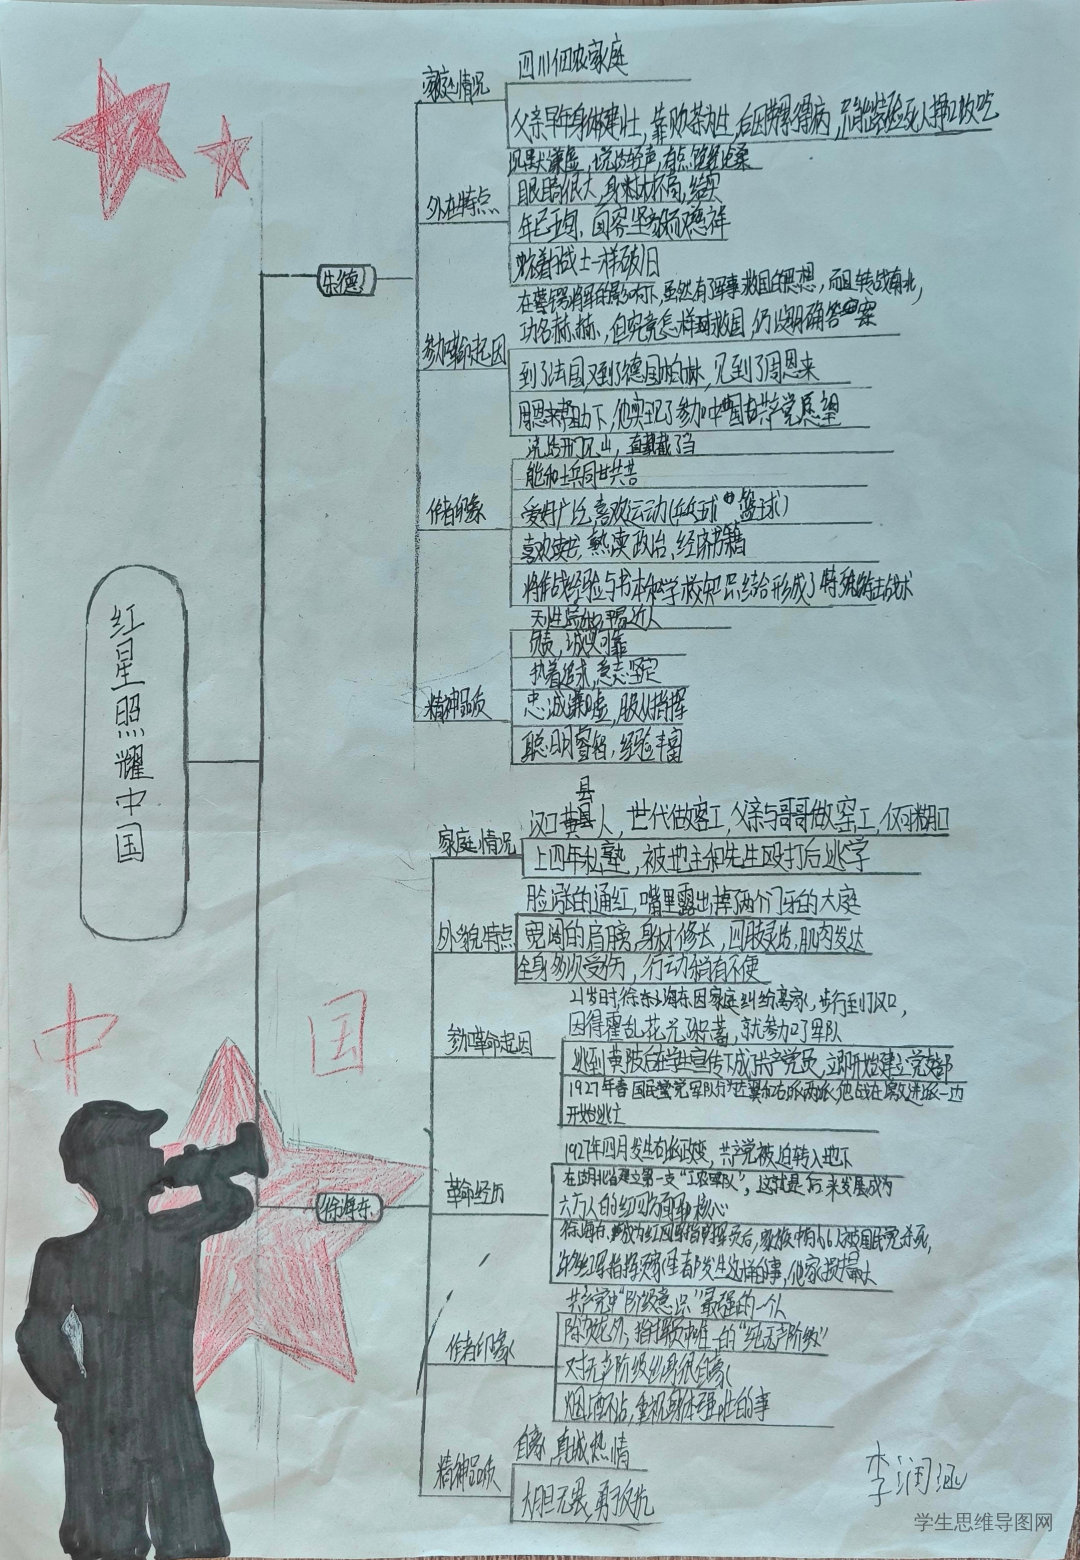 红星照耀中国
朱德
家庭情况
四川佃农家庭
父亲早年身体建壮，靠贩茶为生，后因得病，死人
外在特点
沉默谦虚，说话轻声，有点
眼睛很大，身材不高，结实
年已五旬，面容坚毅而又慈祥
穿着和战士一样破旧
参加革命起因
在蔡锷将军的影响下，虽然有了军事救国的思想，而且转战南北，
功名赫赫，但究竟怎样救国，仍没明确答案
到了法国又到了德国柏林，见到了周恩来
周恩来帮助下，他实现了参加中国共产党愿望
作者印象
说话开门见山，直截了当
能和士兵同甘共苦
爱好广泛，喜欢运动(乒乓球 篮球)
喜欢读书，熟读政治，经济书籍
将作战经验与书本和学校知识结合形成了特战术
精神品质
天性温和，平易近人
负责，诚实可靠
执着追求，意志坚定
忠诚谦虚，服从指挥
聪明睿智，经验丰富
徐海东
家庭情况
县
汉口黄县人，世代做窑工，父亲与哥哥做窑工，仅可糊口
上四年私塾，被地主和先生殴打后逃学
外貌特点
脸涨的通红，嘴里露出掉两个门牙的大庭
宽阔的肩膀，身材修长，四肢灵活，肌肉发达
全身多次受伤，行动稍有不便
参加革命起因
21岁时徐海东因家庭纠纷离家，步行到汉口，
因得霍乱花光积蓄，就参加了军队
逃到黄陂后在学生宣传下成共产党员，立即开始建立党支部
1927年春国民党军队分左翼和右派两派，他站在激进派一边
开始逃亡
革命经历
1927年四月发生右派政变，共产党被迫转入地下
在湖北省建立第一支“工农军队”，这就是后来发展成为
六万人的红四方面军核心
徐海东成为红四军指挥员后，家族中有66人被国民党杀死，
许多红军指挥家里都发生这样的事，他家损失最大
作者印象
共产党中“阶级意识”最强的一个人
除贺龙外，指挥员中唯一的“纯无产阶级”
对无产阶级出身很自豪
烟酒不沾，重视身体强壮的事
精神品质
自豪 真诚热情
大胆无畏，勇于反抗
中
国
李润涵
学生思维导图网